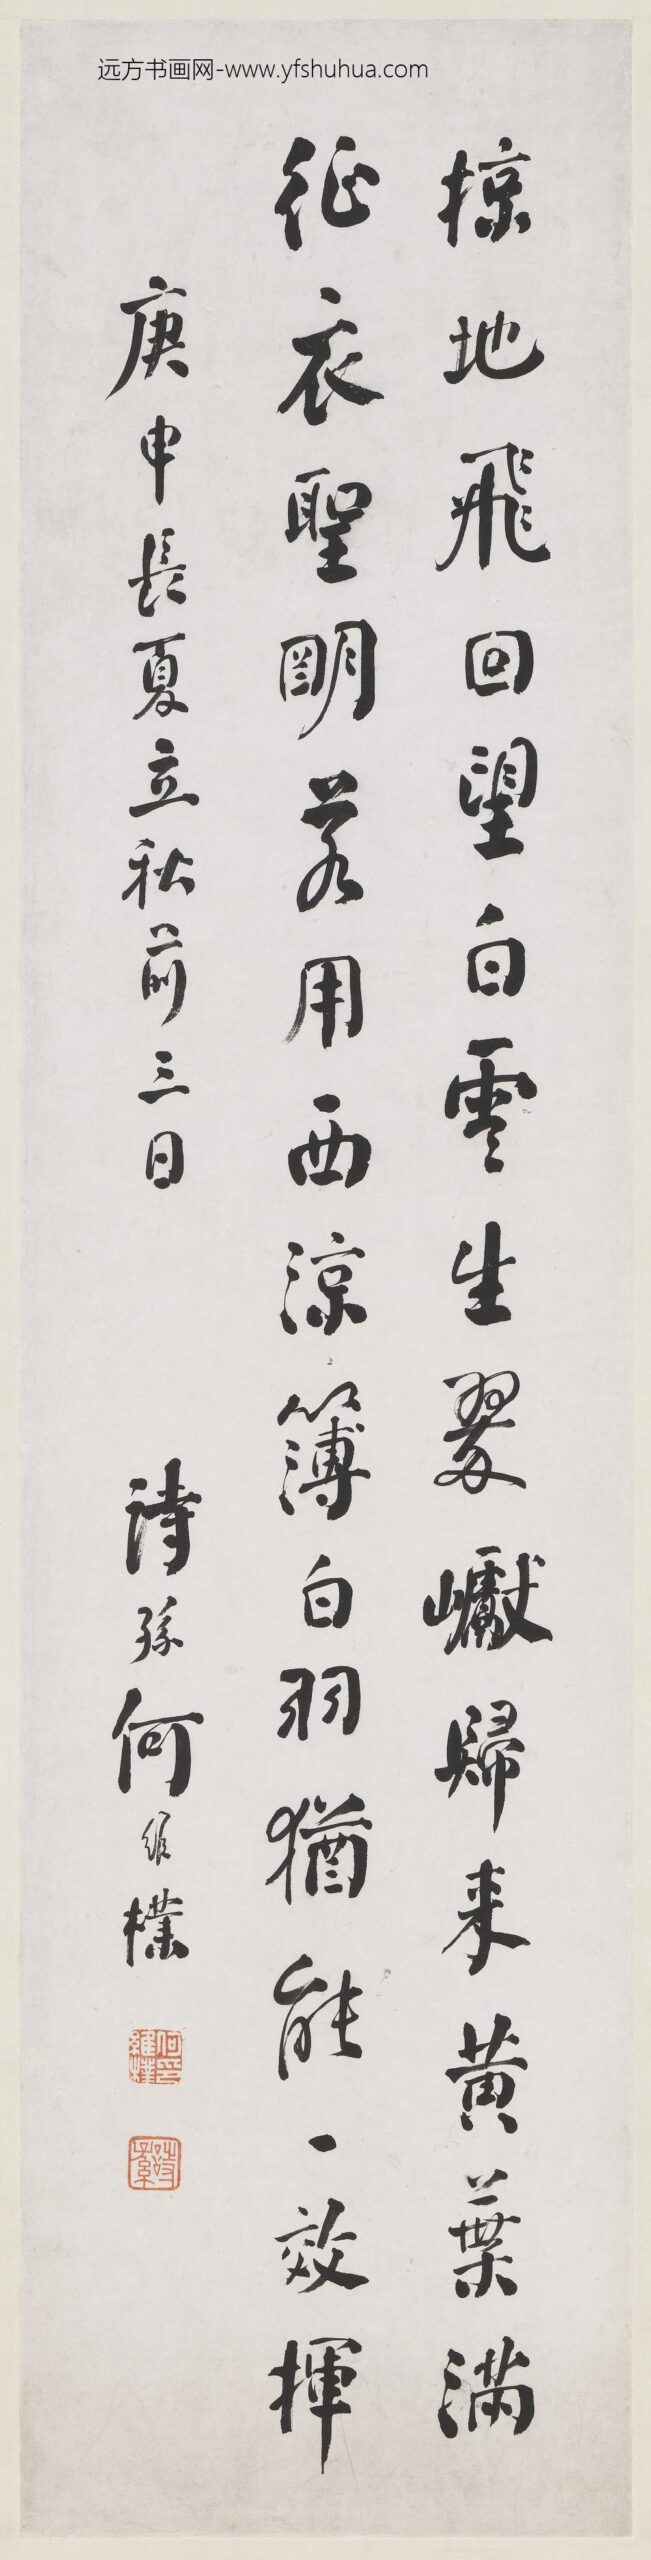 远方书画网-www.yfshuhua.com
掠地飛回望白雲生翠巘歸来黄葉滿
征衣聖明若用西涼簿白羽猶能一效揮
庚申長夏立秋前三日
詩孫何維樸
何維樸印
詩孫